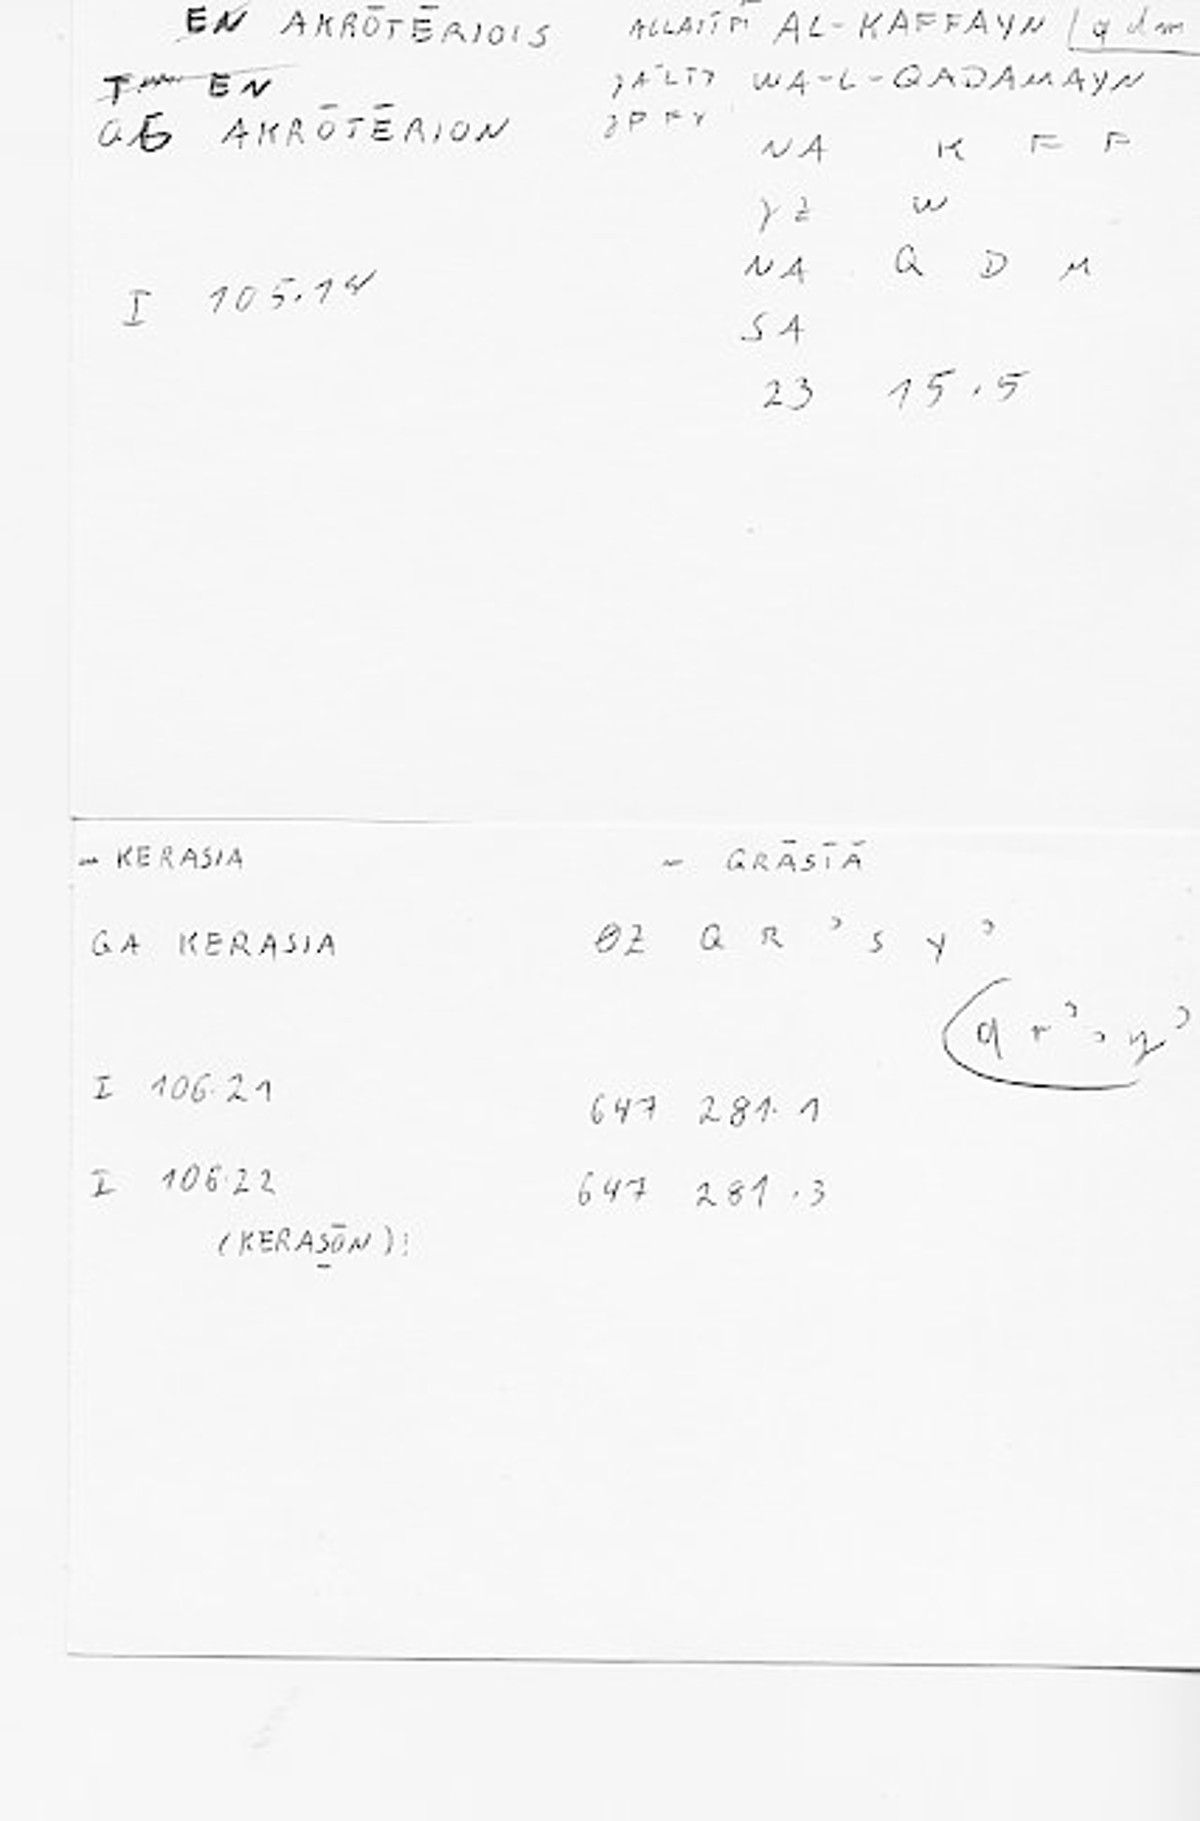 EN AKRŌTĒRIOIS
EN
AKRŌTĒRION
I 105.14
AL-KAFFAYN qdm
WA-L-QADAMAYN
NA K F F
YZ W
NA Q D M
SA
23 15.5
~ KERASIA
GA KERASIA
I 106.21
I 106.22
(KERASŌN)!
~ QRĀSĪĀ
ØZ Q R ʾ S Y ʾ
647 281.1
647 281.3